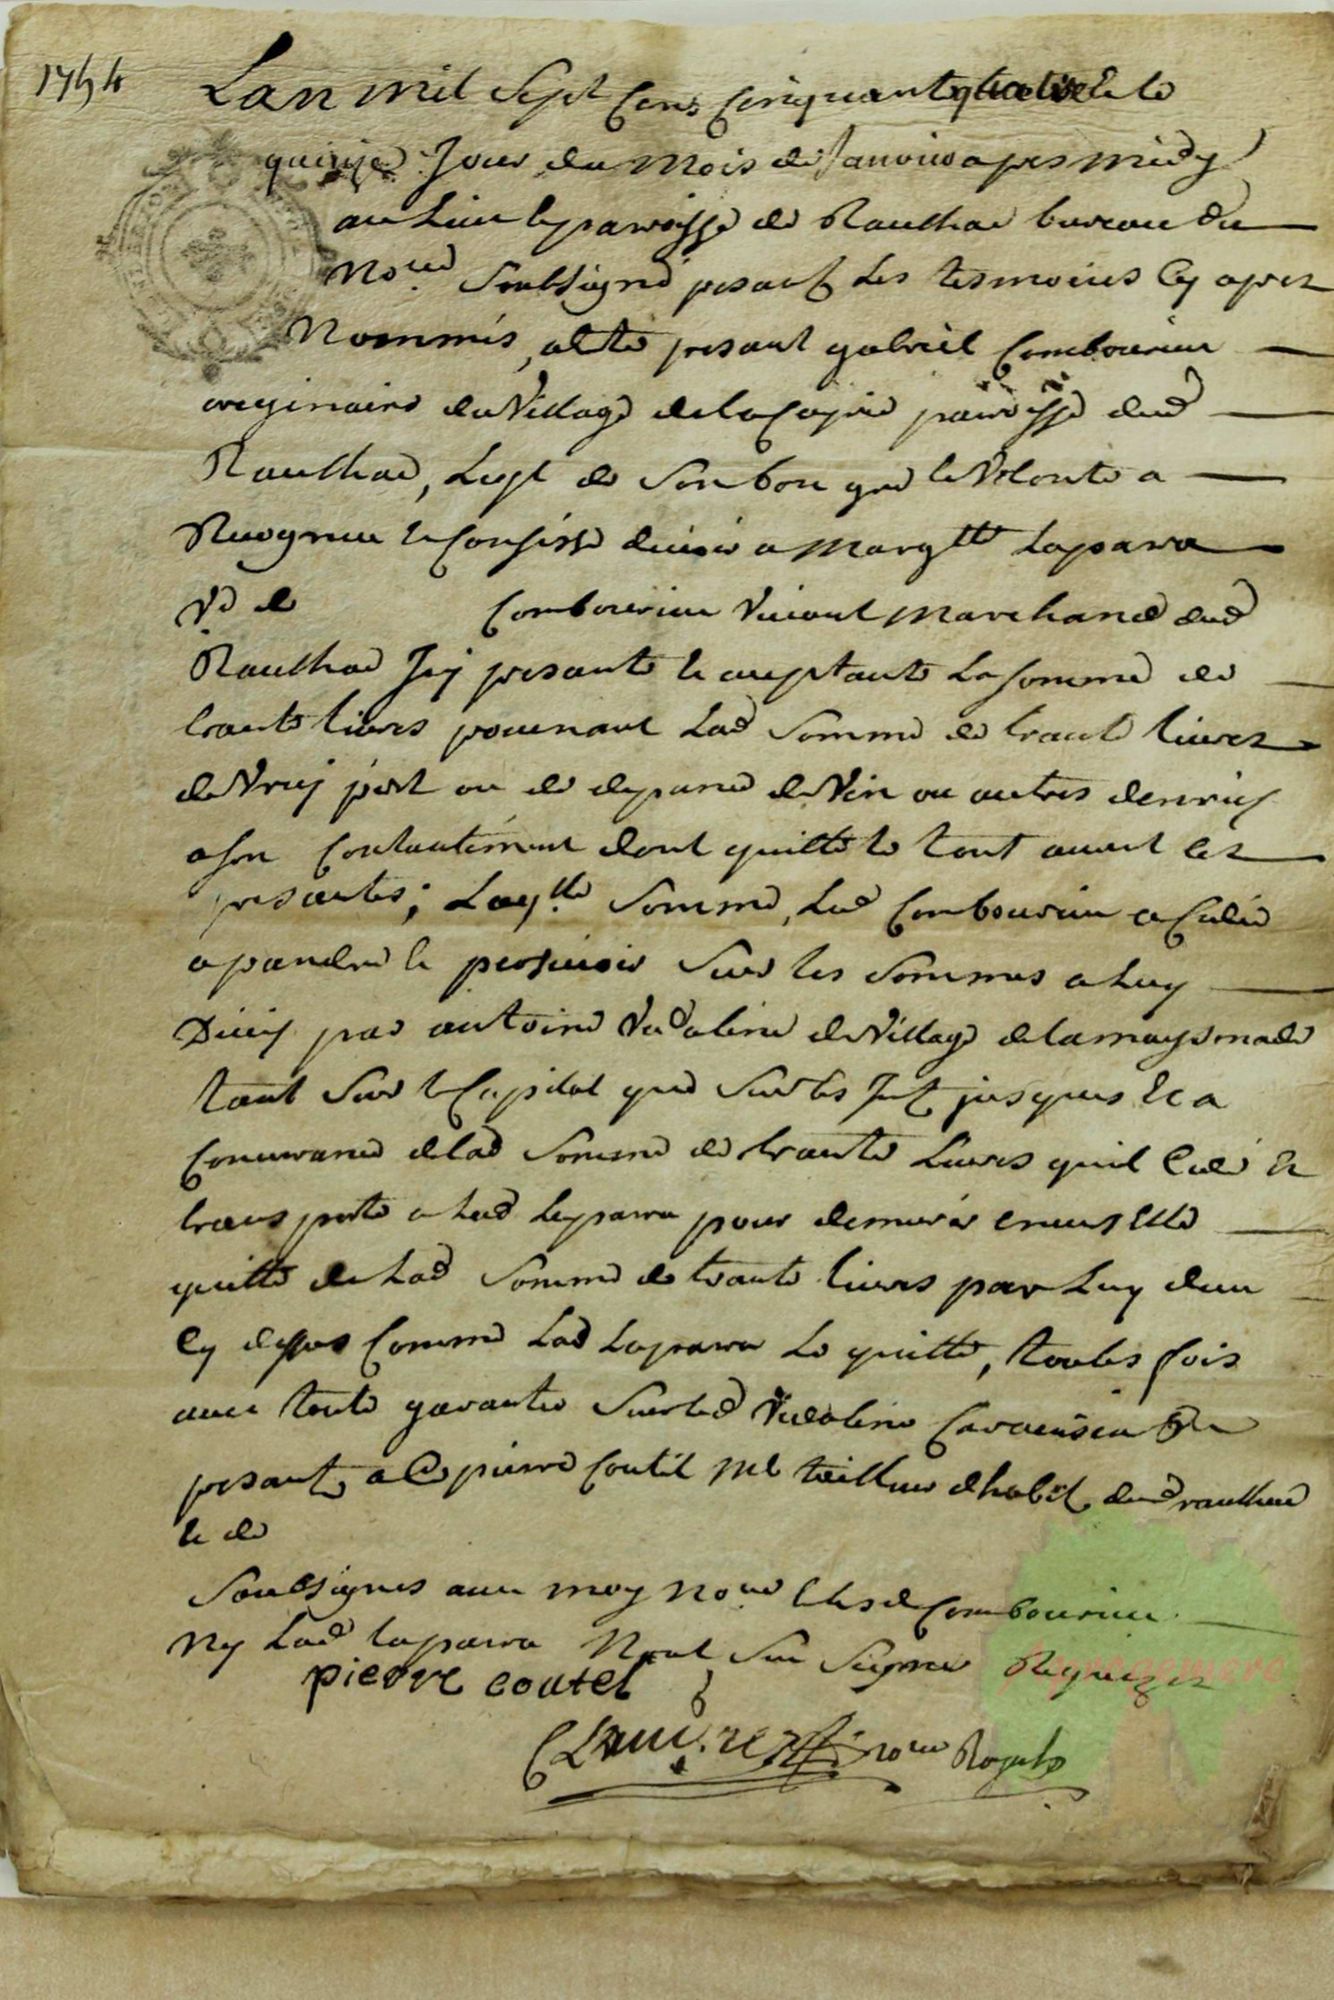 1754
Lan mil Sept Cens Cinquante quatre & le
quinze Jour du mois de Janvier apres midy
au Lieu & paroisse de Raulhac bureau du
No.re Soubsigné presant Les tesmoins Cy apres
Nommés, a este presant gabriel Combourieu
originaire du Village de la paroisse dud
Raulhac, Leql de Son bon gre & Volonte a
Recogneu & Confesse devoir a Margtte Laparra
Ve de Combourieu Vivant Marchand dud
Raulhac Icy presante & aceptante La somme de
trante livres provenant Lad Somme de trante livres
de Vray prest ou de depance de Vin ou autres denrées
a son Contantement dont quitte le tout avant les
presantes; Laqlle Somme, Led Combourieu a Cedé
a prandre & persevoir Sur les Sommes a Luy
Deües par antoine Vidaline du Village de
tant Sur le Capital que Sur les Int jusques & a
Concurance de lad Somme de trante Livres quil Cede &
transporte a Lad Laparra pour demurer envers Elle
quitte de Lad Somme de trante livres par Luy deue
Cy dessus Comme Lad Laparra Le quitte, toutes fois
avec toute garantie Sur led Vidaline
presants a Ce pierre Coutil Me tailleur dhabit dud raulhac
& de
Soubsignes avec moy Nore & led Combourieu
Ny Lad laparra Nont Seu Signer Requis
pierre coutel
nore Royal